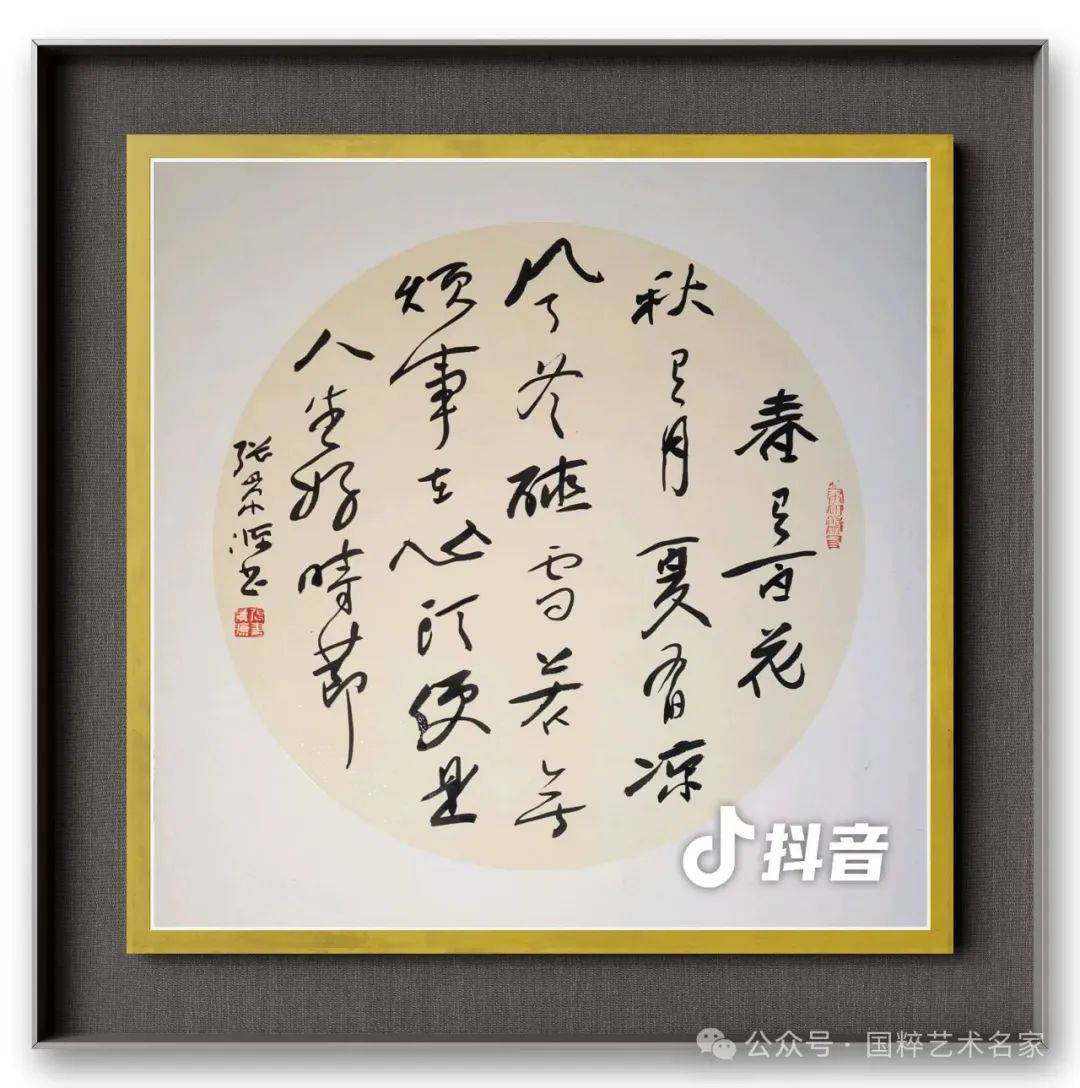 春有百花
秋有月夏有凉
风冬雪若无
烦事在心头便是
人生好時節
张荣源书
抖音
公众号 · 国粹艺术名家